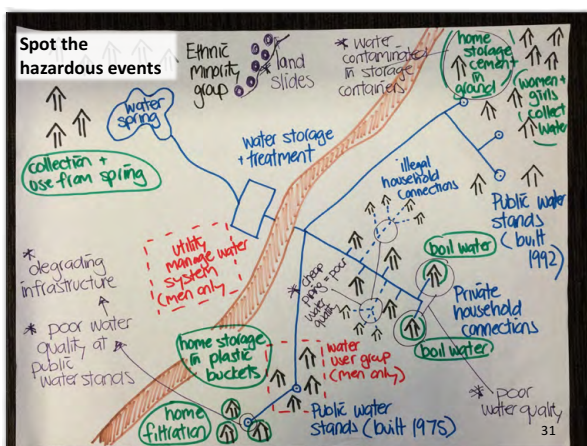 Spot the
hazardous events
Ethnic
minority
group
land
slides
* water
contaminated
in storage
containers
home
storage
cement
in
ground
women +
girls
collect
water
water
spring
collection +
use from spring
water storage
+ treatment
illegal
household
connections
Public water
stands (built
1992)
utility
manage water
system
(men only)
* degrading
infrastructure
* poor water
quality at
public
water stands
* cheap
piping = poor
water quality
boil water
Private
household
connections
boil water
home storage
in plastic
buckets
water
user group
(men only)
home
filtration
Public water
stands (built 1975)
* poor
water quality
31